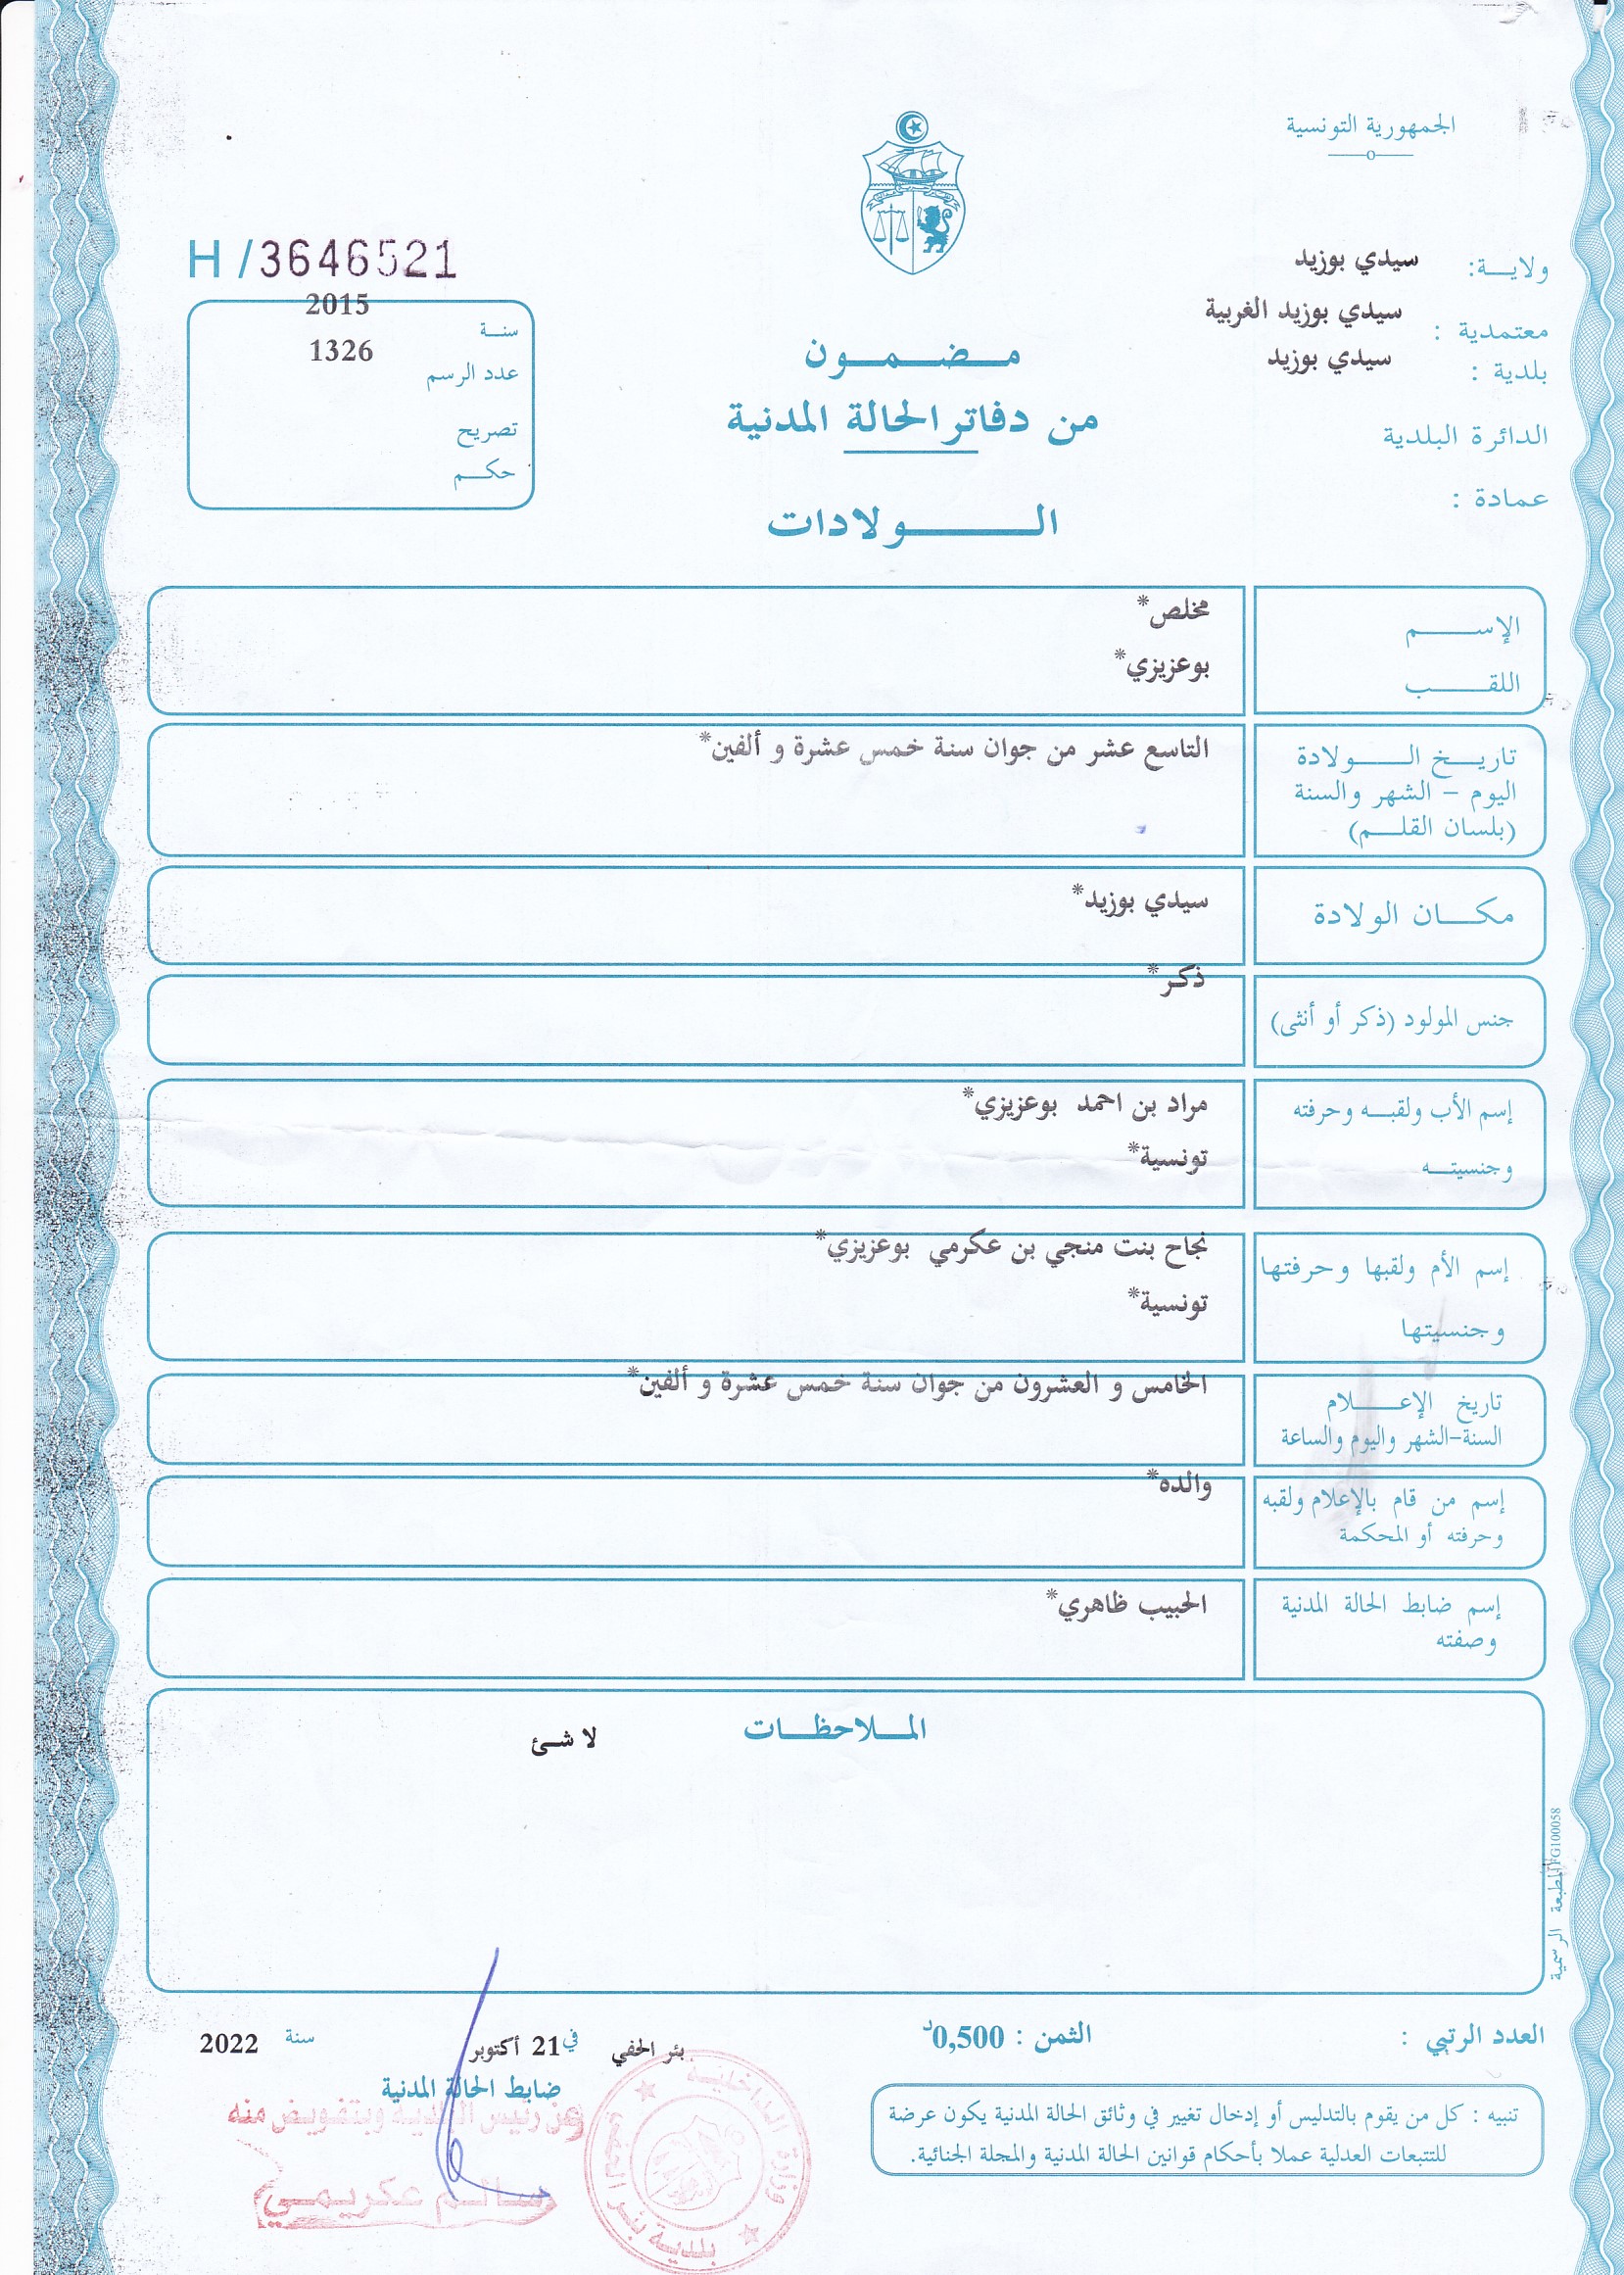 الجمهورية التونسية
H / 3646521
ولايـــة: سيدي بوزيد
معتمدية : سيدي بوزيد الغربية
بلدية : سيدي بوزيد
الدائرة البلدية
عمادة :
سنـــة 2015
عدد الرسم 1326
تصريح
حكـــم
مـــضـــمـــون
من دفاتر الحالة المدنية
الـــــولادات
الإســـــم مخلص*
اللقـــــب بوعزيزي*
تاريـــخ الـــــولادة التاسع عشر من جوان سنة خمس عشرة و ألفين*
اليوم – الشهر والسنة
(بلسان القلـــم)
مكـــان الولادة سيدي بوزيد*
جنس المولود (ذكر أو أنثى) ذكر*
إسم الأب ولقبـــه وحرفته مراد بن احمد بوعزيزي*
وجنسيتـــه تونسية*
إسم الأم ولقبها وحرفتها نجاح بنت منجي بن عكرمي بوعزيزي*
وجنسيتها تونسية*
تاريخ الإعـــــلام الخامس و العشرون من جوان سنة خمس عشرة و ألفين*
السنة-الشهر واليوم والساعة
إسم من قام بالإعلام ولقبه والده*
وحرفته أو المحكمة
إسم ضابط الحالة المدنية الحبيب ظاهري*
وصفته
المـــلاحظـــات
لا شئ
المطبعة الرسمية FG100058
العدد الرتبي :
الثمن : 0,500د
بئر الحفي في 21 أكتوبر سنة 2022
ضابط الحالة المدنية
عن رئيس البلدية وبتفويض منه
سالم عكريمي
وزارة الداخلية
بلدية بئر الحفي
تنبيه : كل من يقوم بالتدليس أو إدخال تغيير في وثائق الحالة المدنية يكون عرضة
للتتبعات العدلية عملا بأحكام قوانين الحالة المدنية والمجلة الجنائية.